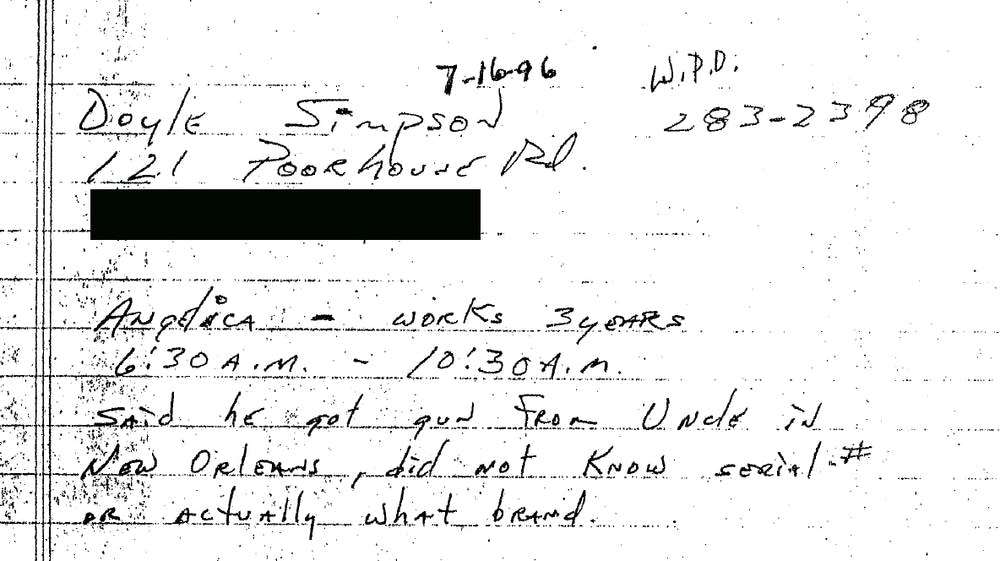 7-16-96 W.P.D.
Doyle Simpson 283-2398
121 Poorhouse Rd.
Angelica - works 3 years
6:30 A.M. - 10:30 A.M.
Said he got gun from Uncle in
New Orleans, did not know serial #
or actually what brand.